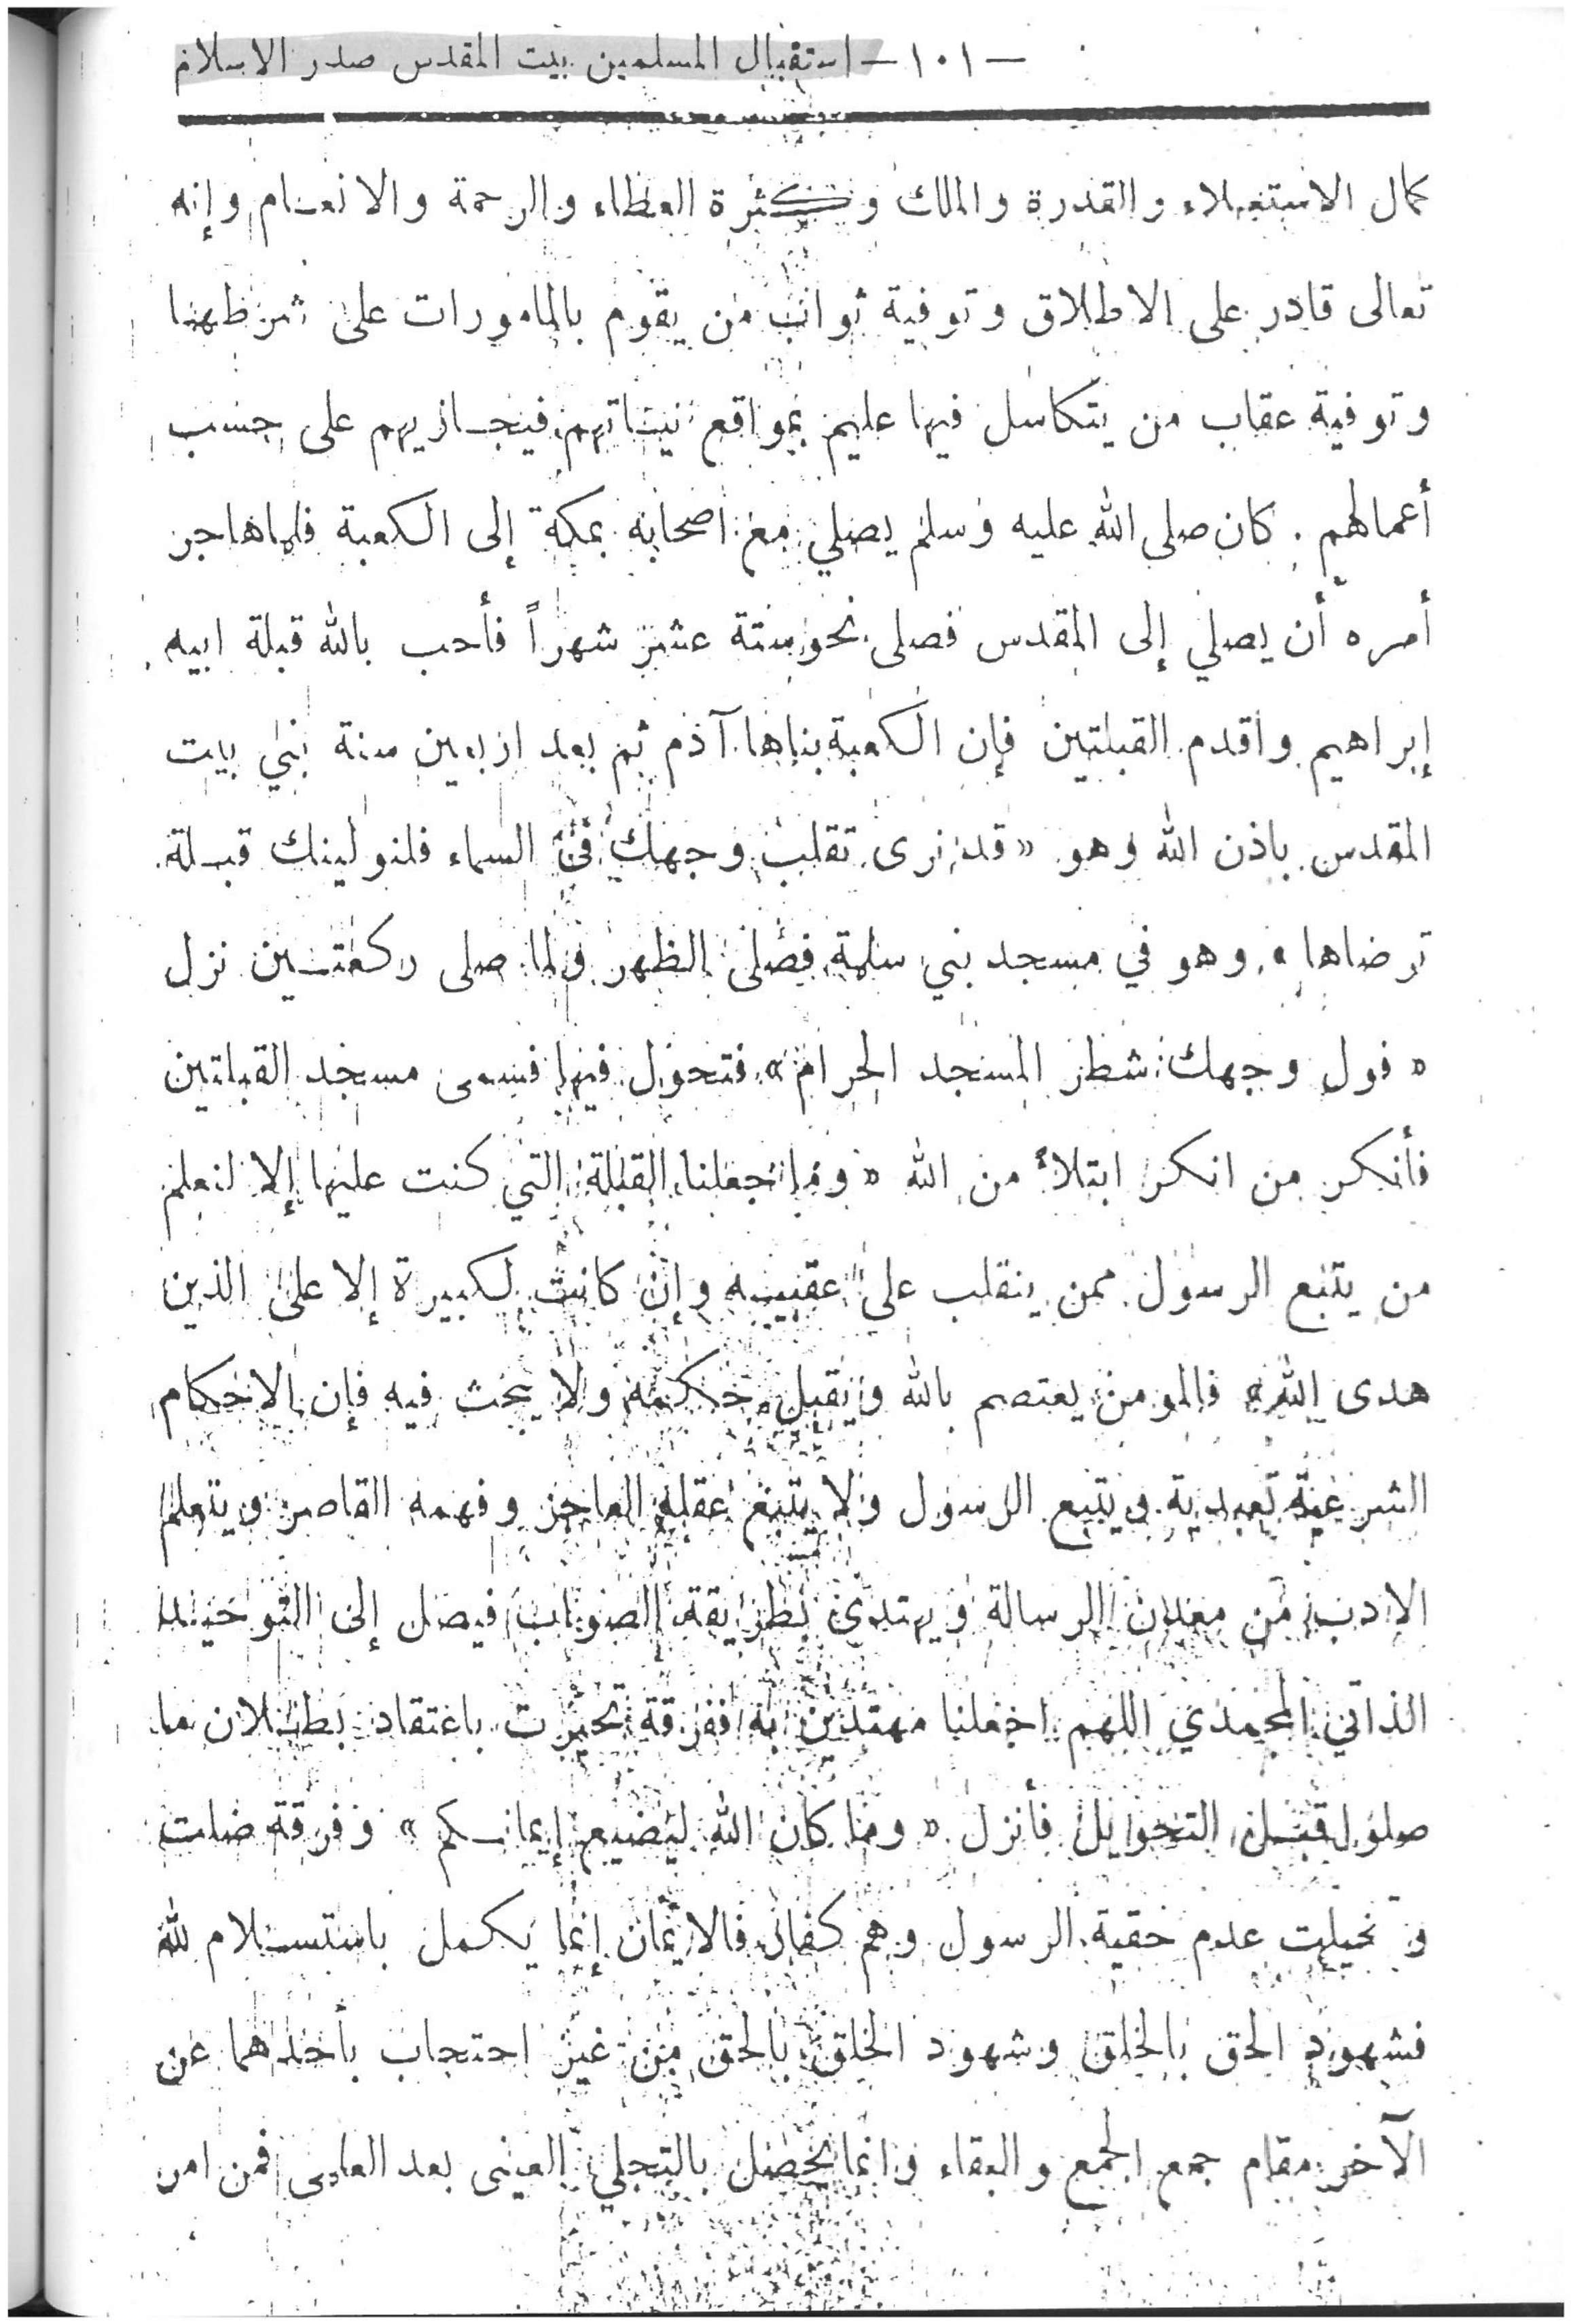 — ١٠١ — استقبال المسلمين بيت المقدس صدر الاسلام
كمال الاستعلاء والقدرة والملك وكثرة العطاء والرحمة والانعام وإنه
تعالى قادر على الاطلاق وتوفية ثواب من يقوم بالمامورات على شرطها
وتوفية عقاب من يتكاسل فيها عليم بمواقع نيتاتهم فيجازيهم على حسب
أعمالهم . كان صلى الله عليه وسلم يصلي مع اصحابه بمكة إلى الكعبة فلما هاجر
أمره أن يصلي إلى المقدس فصلى نحو ستة عشر شهراً فأحب بالله قبلة ابيه
إبراهيم واقدم القبلتين فإن الكعبة بناها آدم ثم بعد اربعين سنة بني بيت
المقدس باذن الله وهو « قد نرى تقلب وجهك في السماء فلنولينك قبلة
ترضاها » وهو في مسجد بني سلمة فصلى الظهر ولما صلى ركعتين نزل
« فول وجهك شطر المسجد الحرام » فتحول فيها فسمى مسجد القبلتين
فأنكر من انكر ابتلاءً من الله « وما جعلنا القبلة التي كنت عليها إلا لنعلم
من يتبع الرسول ممن ينقلب على عقبيه وإن كانت لكبيرة إلا على الذين
هدى الله » فالمومن يعتصم بالله ويقبل حكمه ولا يبحث فيه فإن الاحكام
الشرعية تعبدية ويتبع الرسول ولا يتبع عقله العاجز وفهمه القاصر ويتعلم
الادب من معدن الرسالة ويهتدى بطريقة الصواب فيصل إلى التوحيد
الذاتي المحمدي اللهم اجعلنا مهتدين به ففرقة تحيرت باعتقاد بطلان ما
صلوا قبل التحويل فأنزل « وما كان الله ليضيع إيمانكم » وفرقة ضلت
وتخيلت عدم حقية الرسول وهم كفار فالايمان إنما يكمل باستسلام لله
فشهود الحق بالخلق وشهود الخلق بالحق من غير احتجاب بأحدهما عن
الآخر مقام جمع الجمع والبقاء وانما يحصل بالتجلي العينى بعد العلمى فمن امن